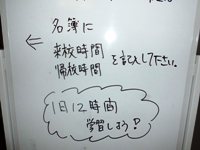 名簿に
来校時間
帰校時間 を記入してください。
1日12時間
学習しよう!